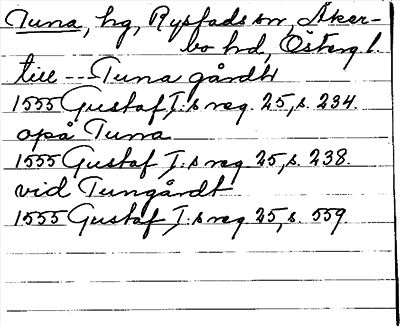 Tuna, hg, Rystads sn, Åker-
bo hd, Österg l.
till --- Tuna gårdh
1555 Gustaf I:s reg. 25, s. 234.
opå Tuna
1555 Gustaf I:s reg 25, s. 238.
vid Tungårdt
1555 Gustaf I:s reg 25, s. 559.